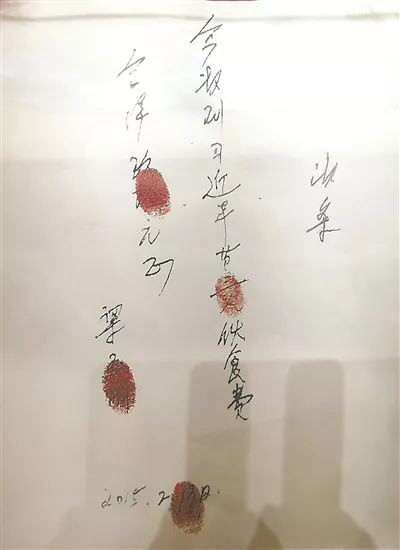 收条
今收到习近平等 伙食费
合洋 元正
梁
2015.2.13日.